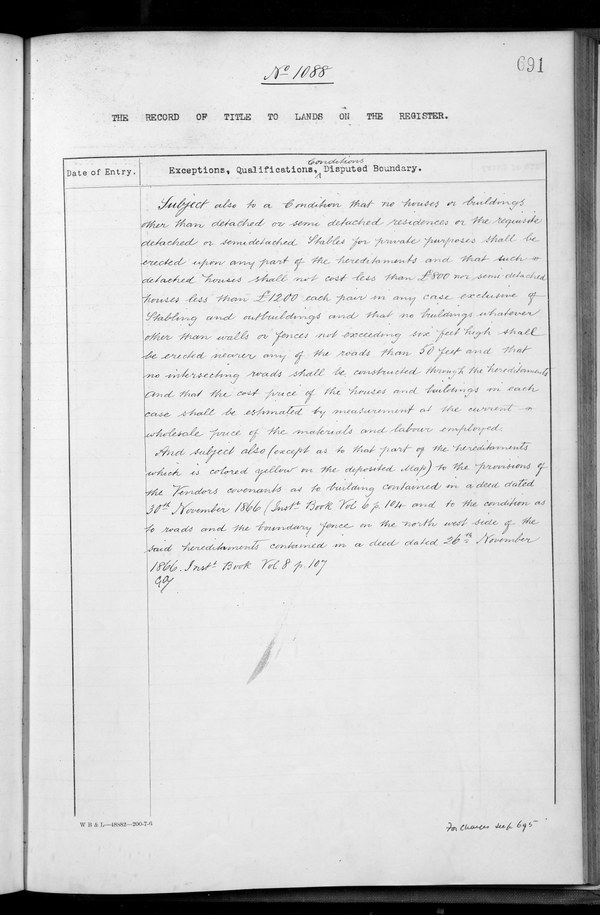 691
No 1088
THE RECORD OF TITLE TO LANDS ON THE REGISTER.
Date of Entry.
Exceptions, Qualifications, Conditions Disputed Boundary.
Subject also to a Condition that no houses or buildings
other than detached or semi detached residences or the requisite
detached or semidetached Stables for private purposes shall be
erected upon any part of the hereditaments and that such
detached houses shall not cost less than £800 nor semi detached
houses less than £1200 each pair in any case exclusive of
Stabling and outbuildings and that no buildings whatever
other than walls or fences not exceeding six feet high shall
be erected nearer any of the roads than 50 feet and that
no intersecting roads shall be constructed through the hereditaments
And that the cost price of the houses and buildings in each
case shall be estimated by measurement at the current
wholesale price of the materials and labour employed.
And subject also (except as to that part of the hereditaments
which is colored yellow on the deposited Map) to the provisions of
the Vendors covenants as to building contained in a deed dated
30th November 1866 (Instt Book Vol 6 p 104 and to the condition as
to roads and the boundary fence on the north west side of the
said hereditaments contained in a deed dated 26th November
1866. Instt Book Vol 8 p. 107
W B & L—48982—200-7-6
For Charges see p. 695